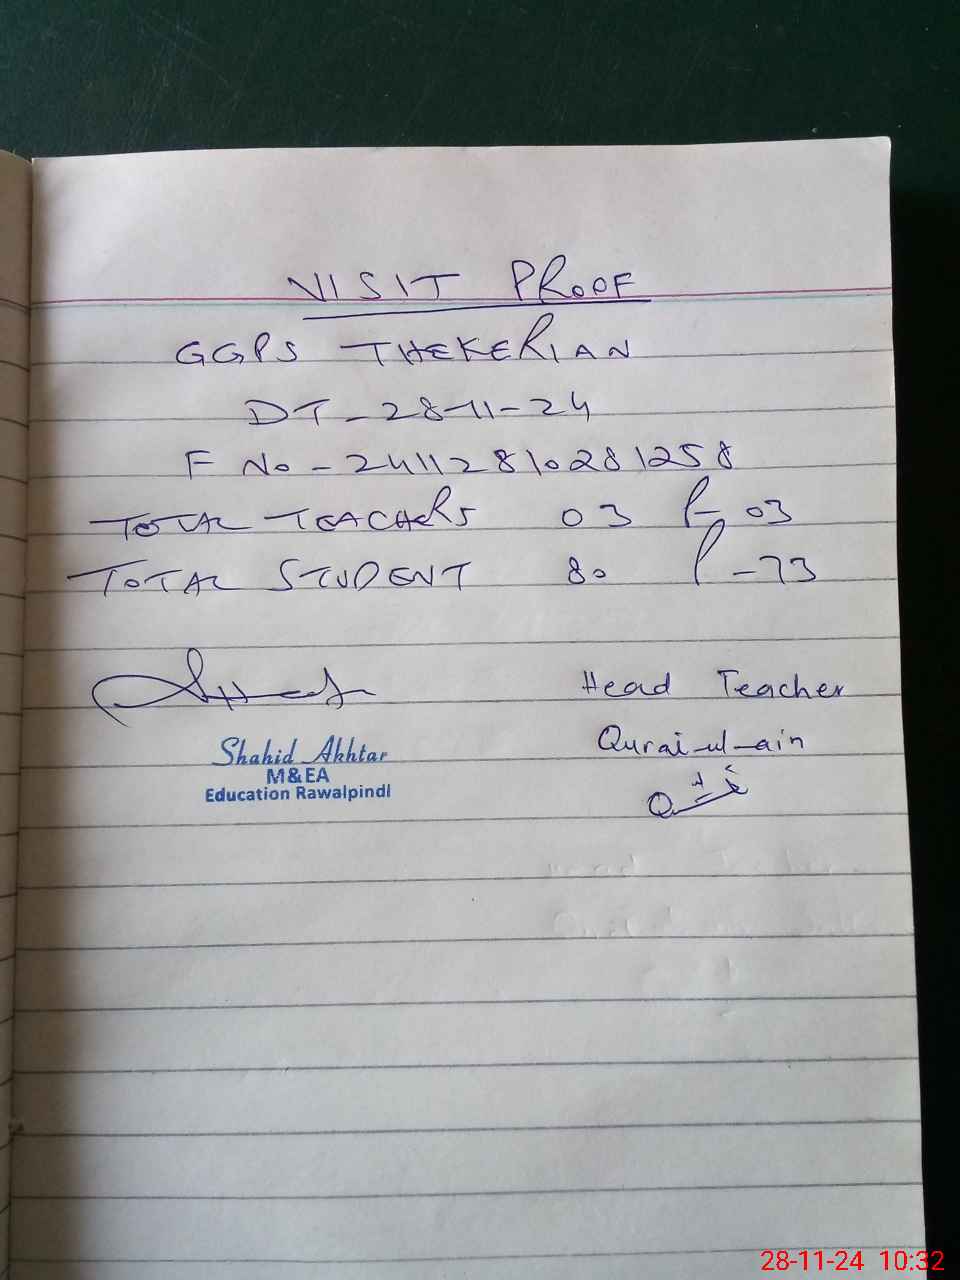 VISIT PROOF
GGPS THEKERIAN
DT - 28-11-24
F No - 2411281028 1258
TOTAL TEACHERS 03 P- 03
TOTAL STUDENT 80 P -73
Head Teacher
Qurai-ul-ain
Shahid Akhtar
M&EA
Education Rawalpindi
28-11-24 10:32